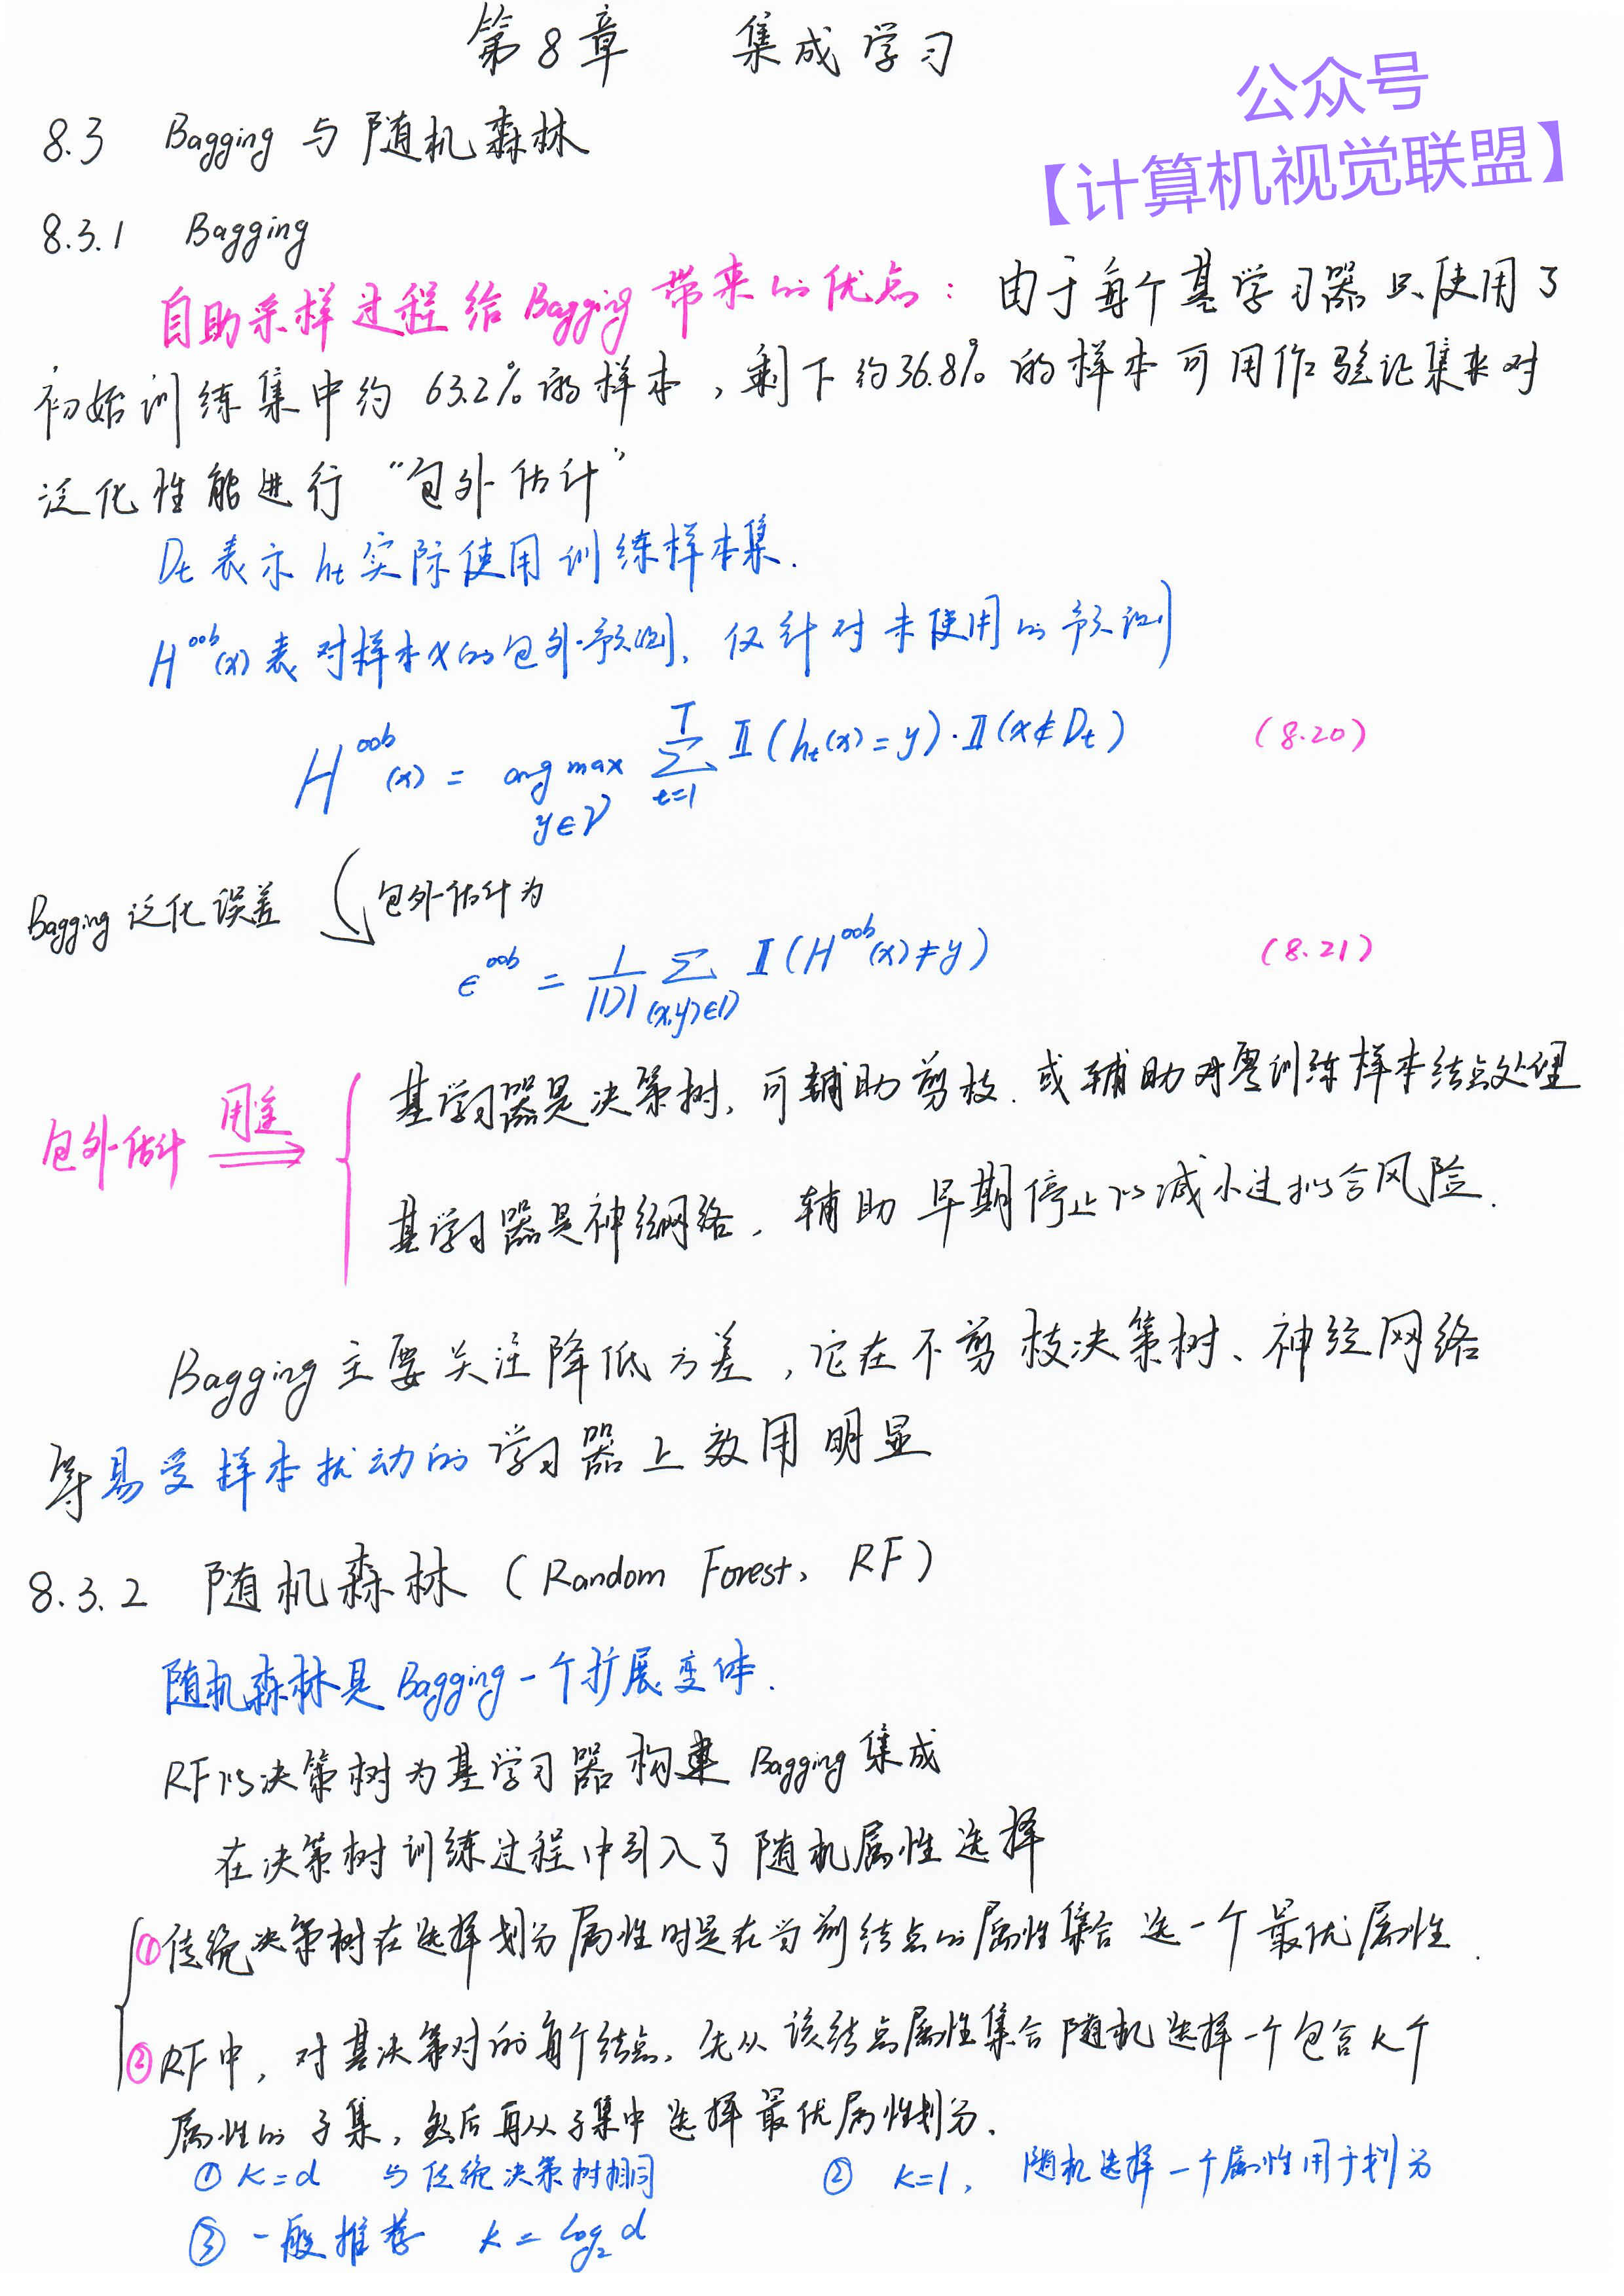 第8章 集成学习
公众号
【计算机视觉联盟】
8.3 Bagging 与随机森林
8.3.1 Bagging
自助采样过程给Bagging带来的优点：由于每个基学习器只使用了
初始训练集中约 63.2% 的样本，剩下约36.8% 的样本可用作验证集来对
泛化性能进行 “包外估计”
Dt 表示 ht 实际使用训练样本集.
H^oob(x) 表对样本x的包外预测, 仅针对未使用的预测
H^oob(x) = arg max_{y∈𝒴} Σ_{t=1}^{T} 𝕀(h_t(x)=y)·𝕀(x∉D_t) (8.20)
Bagging 泛化误差 包外估计为
ϵ^oob = 1/|D| Σ_{(x,y)∈D} 𝕀(H^oob(x)≠y) (8.21)
包外估计 用途 ⇒
基学习器是决策树, 可辅助剪枝. 或辅助对零训练样本结点处理
基学习器是神经网络, 辅助早期停止以减小过拟合风险.
Bagging 主要关注降低方差, 它在不剪枝决策树、神经网络
等易受样本扰动的学习器上效用明显
8.3.2 随机森林 (Random Forest, RF)
随机森林是 Bagging 一个扩展变体.
RF以决策树为基学习器构建 Bagging 集成
在决策树训练过程中引入了随机属性选择
①传统决策树在选择划分属性时是在当前结点的属性集合选一个最优属性.
②RF中, 对基决策对的每个结点, 先从该结点属性集合随机选择一个包含k个
属性的子集, 然后再从子集中选择最优属性划分.
① k=d 与传统决策树相同 ② k=1, 随机选择一个属性用于划分
③ 一般推荐 k = log₂d